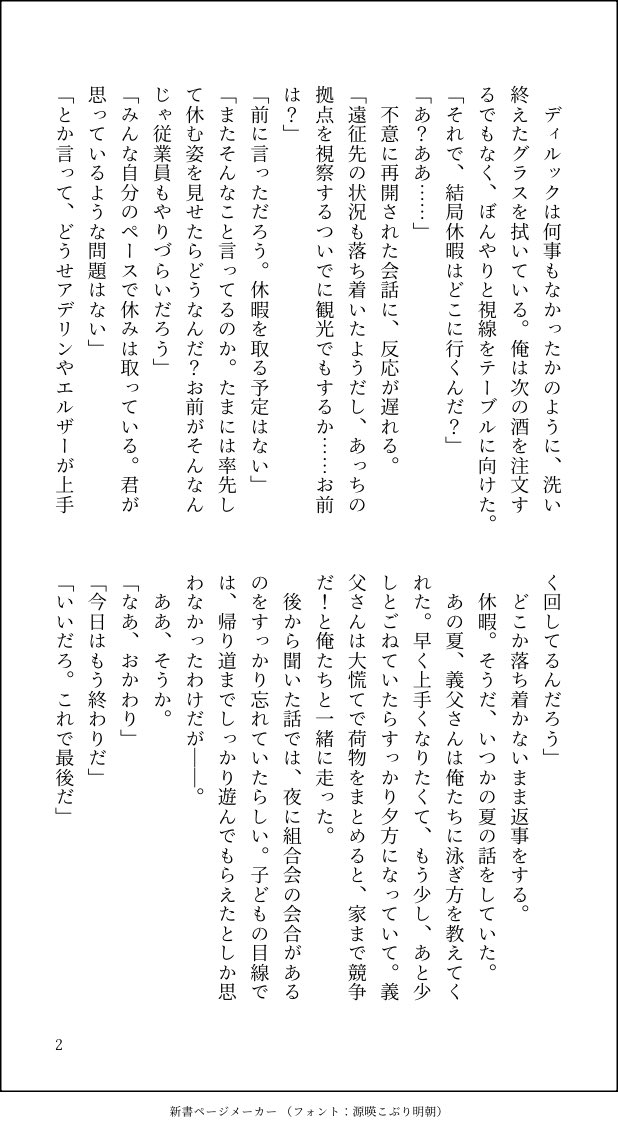 ディルックは何事もなかったかのように、洗い
終えたグラスを拭いている。俺は次の酒を注文す
るでもなく、ぼんやりと視線をテーブルに向けた。
「それで、結局休暇はどこに行くんだ？」
「あ？ああ……」
　不意に再開された会話に、反応が遅れる。
「遠征先の状況も落ち着いたようだし、あっちの
拠点を視察するついでに観光でもするか……お前
は？」
「前に言っただろう。休暇を取る予定はない」
「またそんなこと言ってるのか。たまには率先し
て休む姿を見せたらどうなんだ？お前がそんなん
じゃ従業員もやりづらいだろう」
「みんな自分のペースで休みは取っている。君が
思っているような問題はない」
「とか言って、どうせアデリンやエルザーが上手
く回してるんだろう」
　どこか落ち着かないまま返事をする。
　休暇。そうだ、いつかの夏の話をしていた。
　あの夏、義父さんは俺たちに泳ぎ方を教えてく
れた。早く上手くなりたくて、もう少し、あと少
しとごねていたらすっかり夕方になっていて。義
父さんは大慌てで荷物をまとめると、家まで競争
だ！と俺たちと一緒に走った。
　後から聞いた話では、夜に組合会の会合がある
のをすっかり忘れていたらしい。子どもの目線で
は、帰り道までしっかり遊んでもらえたとしか思
わなかったわけだが――。
　ああ、そうか。
「なあ、おかわり」
「今日はもう終わりだ」
「いいだろ。これで最後だ」
2
新書ページメーカー（フォント：源暎こぶり明朝）